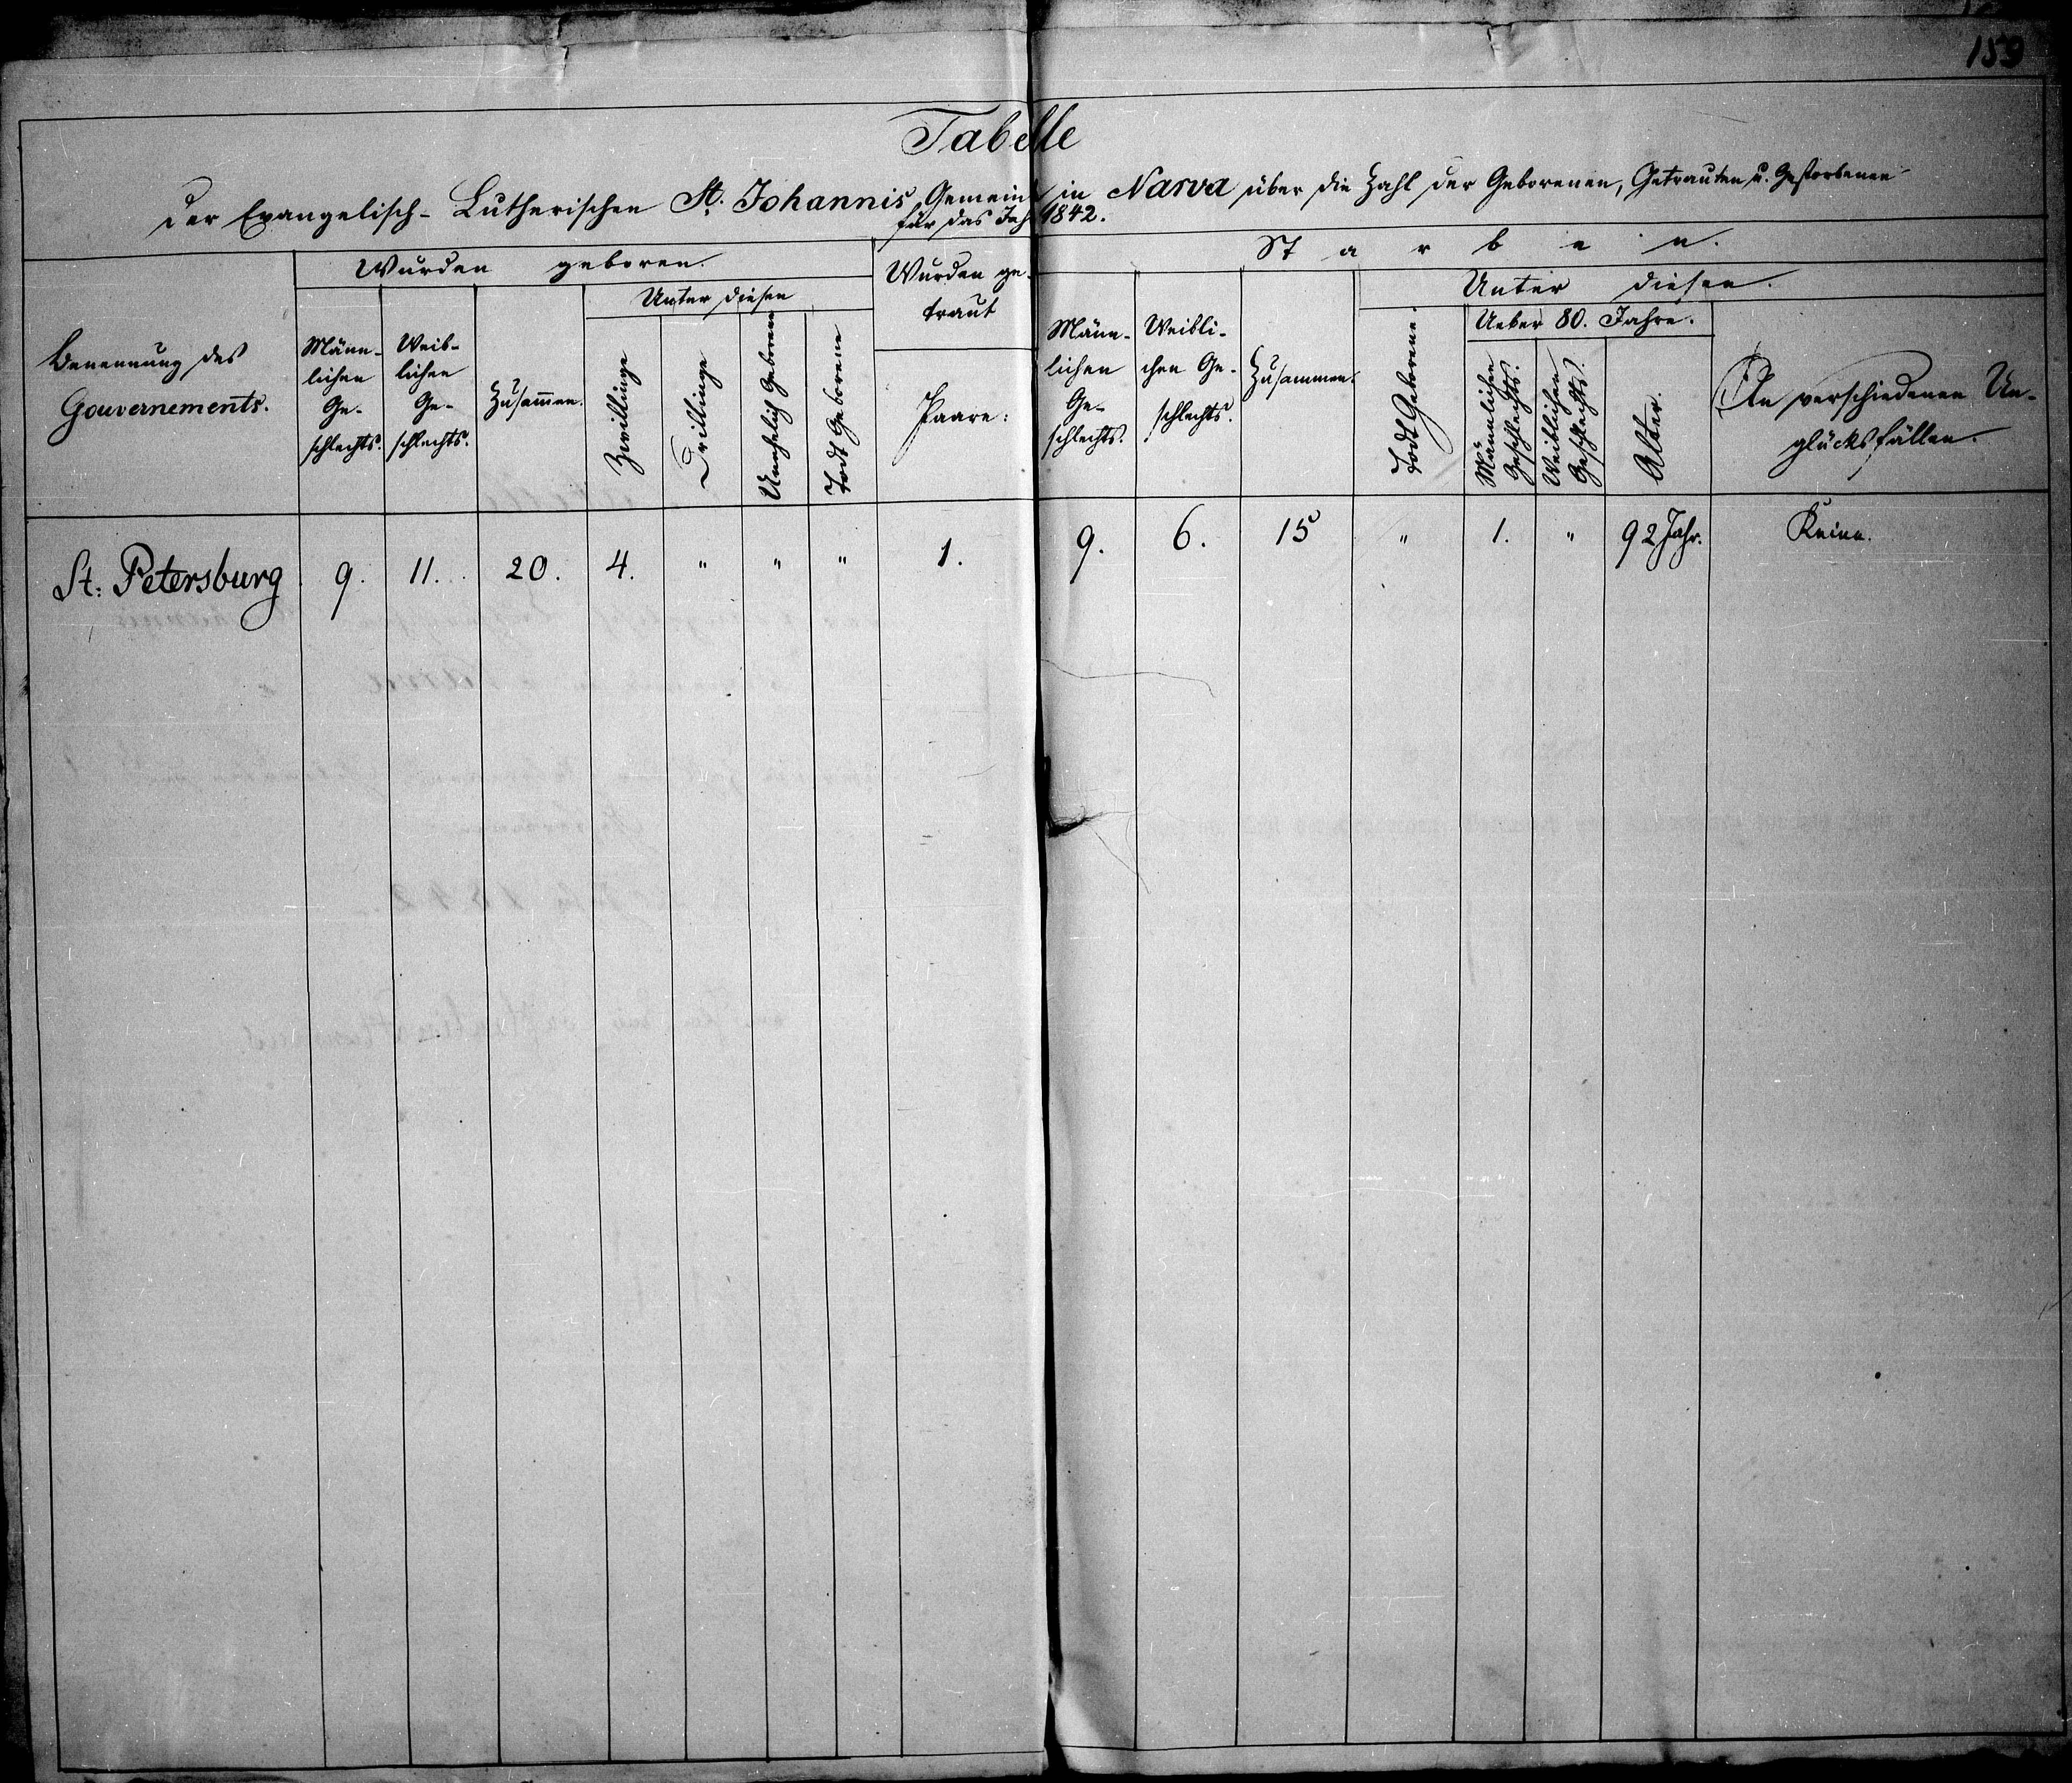 159
Tabelle
der Evangelisch-Lutherischen St. Johannis Gemeinde in Narva über die Zahl der Geborenen, Getrauten u. Gestorbenen
für das Jahr 1842.
Benennung des
Gouvernements.
Wurden geboren.
Männ-
lichen
Ge-
schlechts.
Weib-
lichen
Ge-
schlechts.
Zusam̅en.
Unter diesen
Zwillinge
Drillinge
Unehelich Geborene
Todt Geborene
Wurden ge-
traut
Paare:
Starben.
Männ-
lichen
Ge-
schlechts.
Weibli-
chen Ge-
schlechts.
Zusammen.
Unter diesen.
Todt Geborene.
Ueber 80. Jahre.
Männlichen
Geschlechts.
Weiblichen
Geschlechts.
Alter.
An verschiedenen Un-
glücksfällen.
St: Petersburg 9. 11. 20. 4. " " " 1. 9. 6. 15 " 1. " 92 Jahr. Keine.